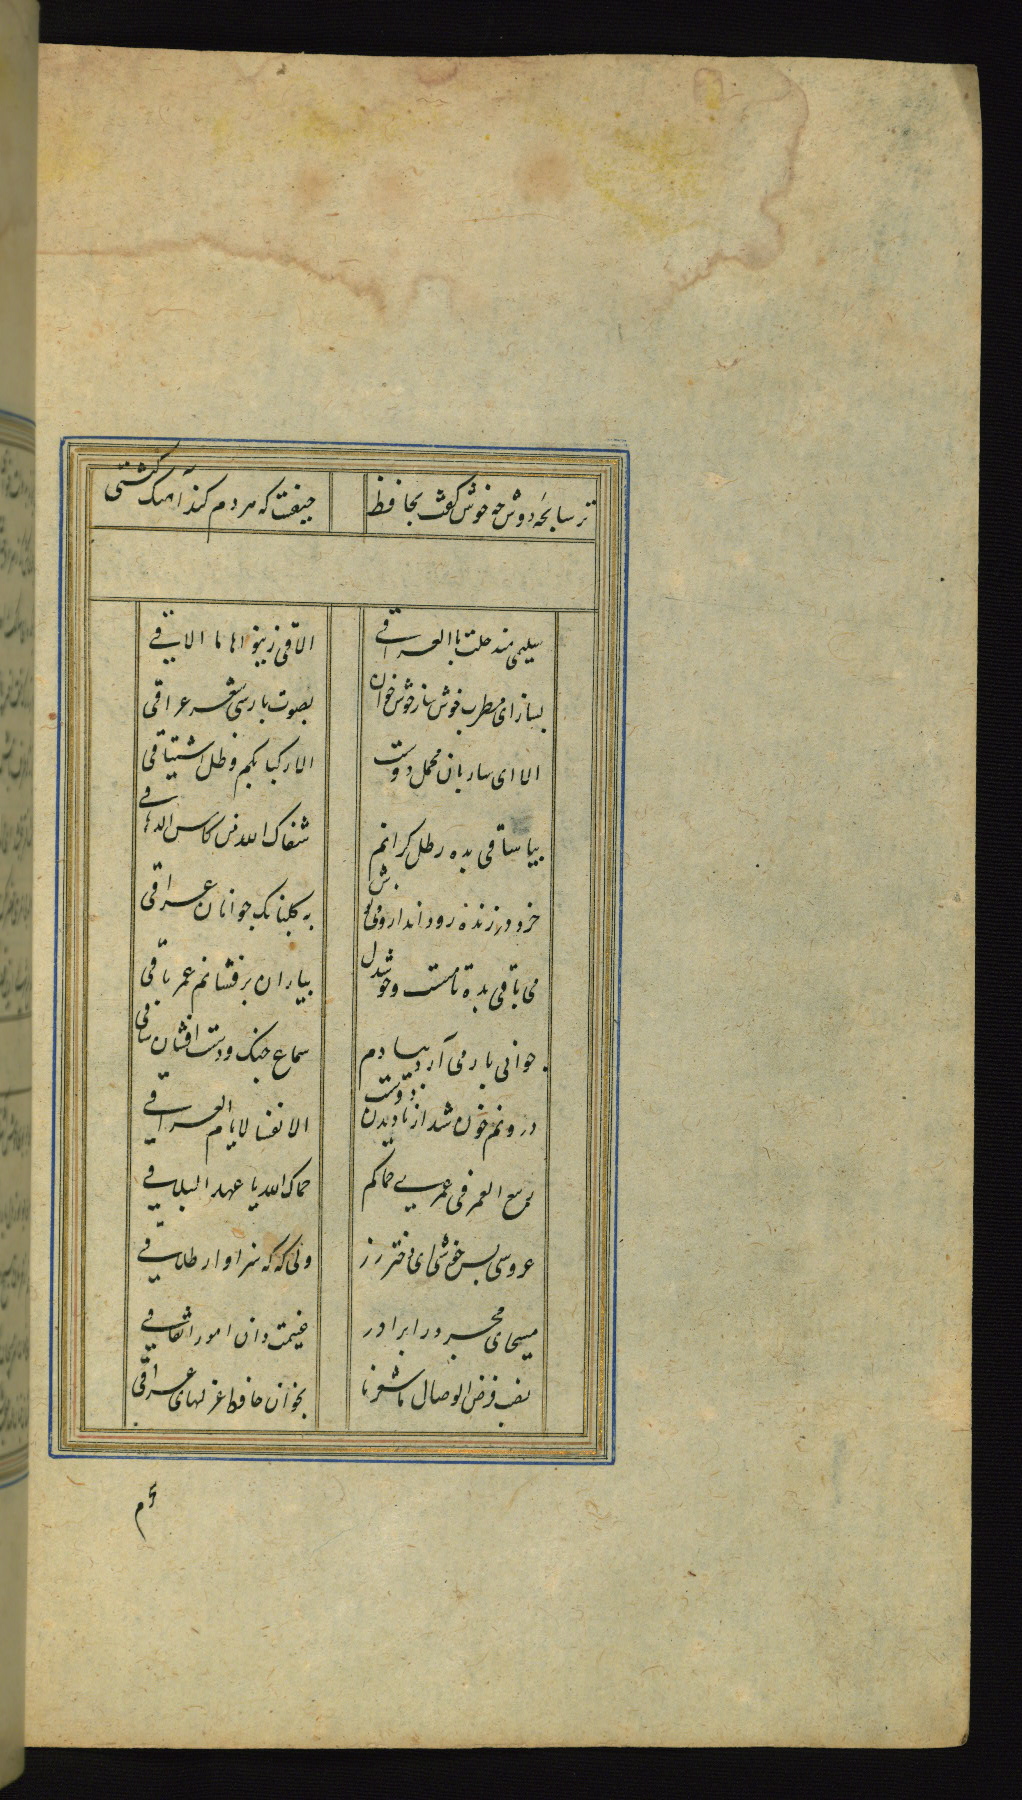 ترسابچه دوش چه خوش گفت بحافظ حیفست که مردم کند آهنگ کنشتی
سلیمی منذ حلت بالعراقی الاقی من نواها ما الاقی
بساز ای مطرب خوش ساز خوش خوان بصوت پارسی شعر عراقی
الا ای ساربان محمل دوست الی رکبانکم طال اشتیاقی
بیا ساقی بده رطل گرانم سقاک الله من کاس الدهاقی
خرد در زنده رود انداز و می نوش به گلبانک جوانان عراقی
می باقی بده تا مست و خوشدل بیاران برفشانم عمر باقی
جوانی باز می آرد بیادم سماع چنگ و دست افشان ساقی
درونم خون شد از نادیدن دوست الا تعسا لایام الفراقی
ربیع العمر فی مرعی حماکم حماک الله یا عهد التلاقی
عروسی بس خوشی ای دختر رز ولی گه گه سزاوار طلاقی
مسیحای مجرد را برآورد غنیمت دان امور اتفاقی
بخوان حافظ غزلهای عراقی
تم